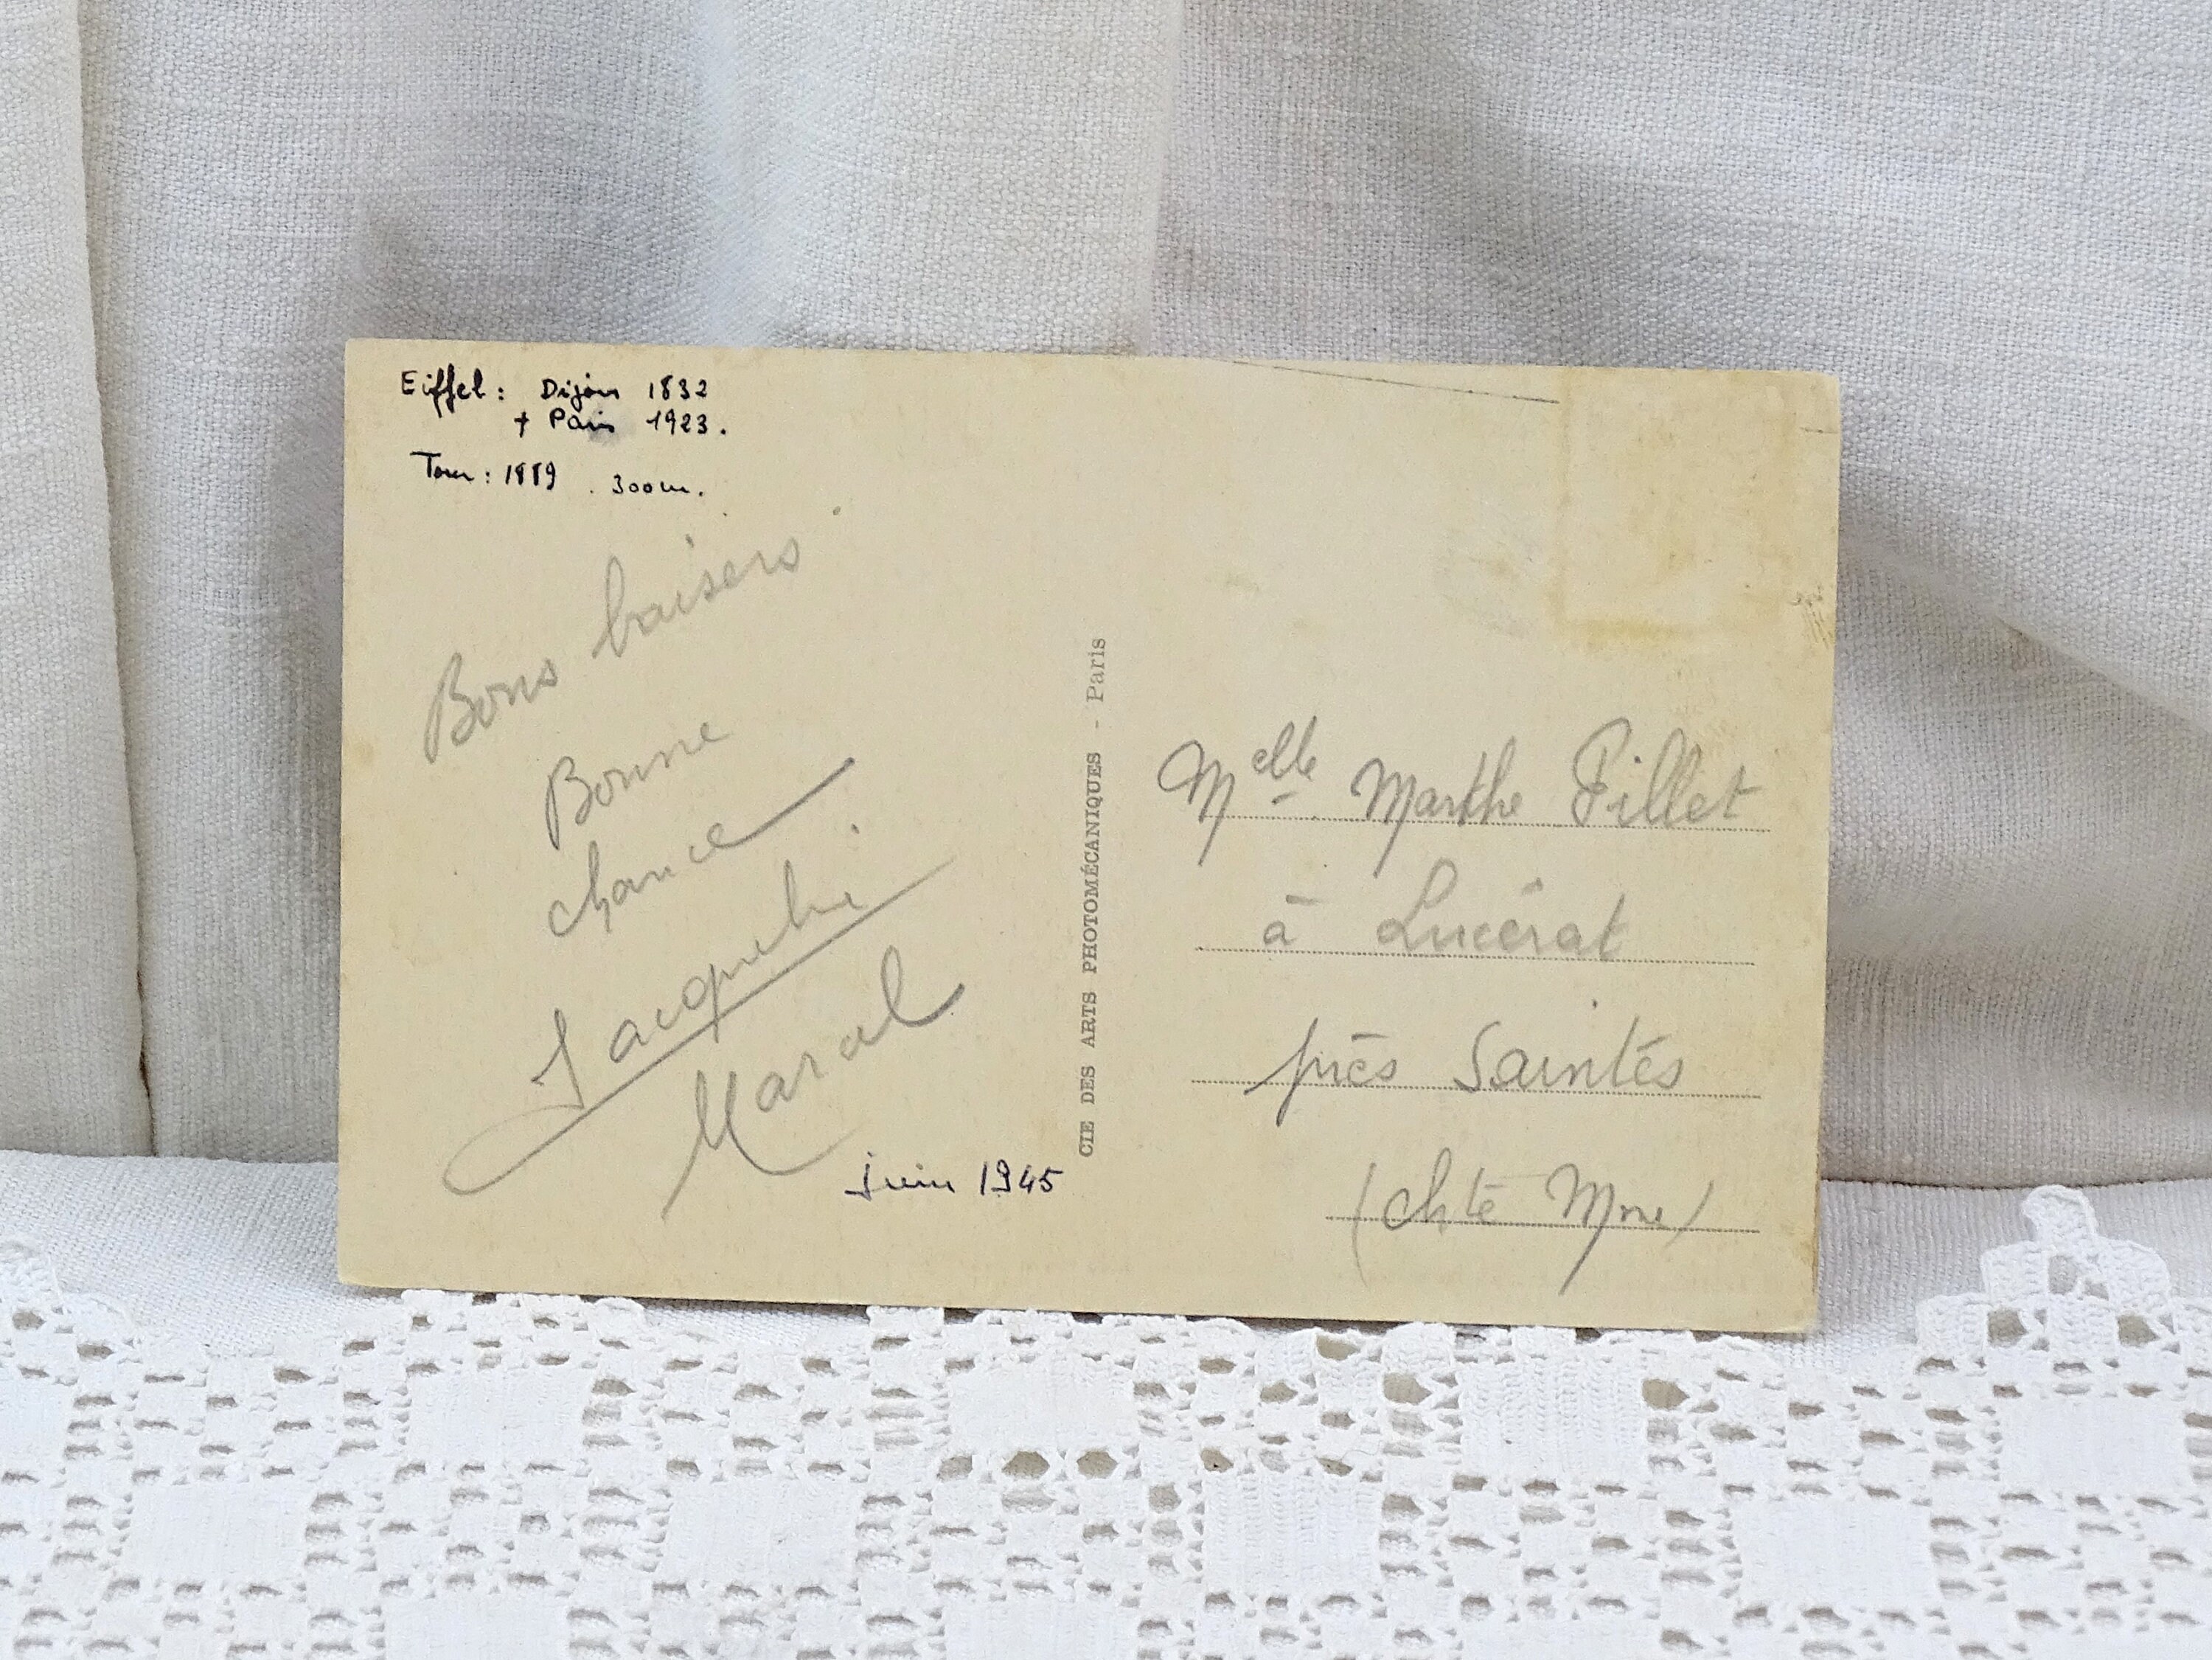 Eiffel : Dijon 1832
+ Paris 1923.
Tour : 1889 . 300m.
Bons baisers
Bonne
chance
juin 1945
CIE DES ARTS PHOTOMÉCANIQUES - Paris
Melle Marthe Pillet
à Lucérat
près Saintes
(Chte Mme)